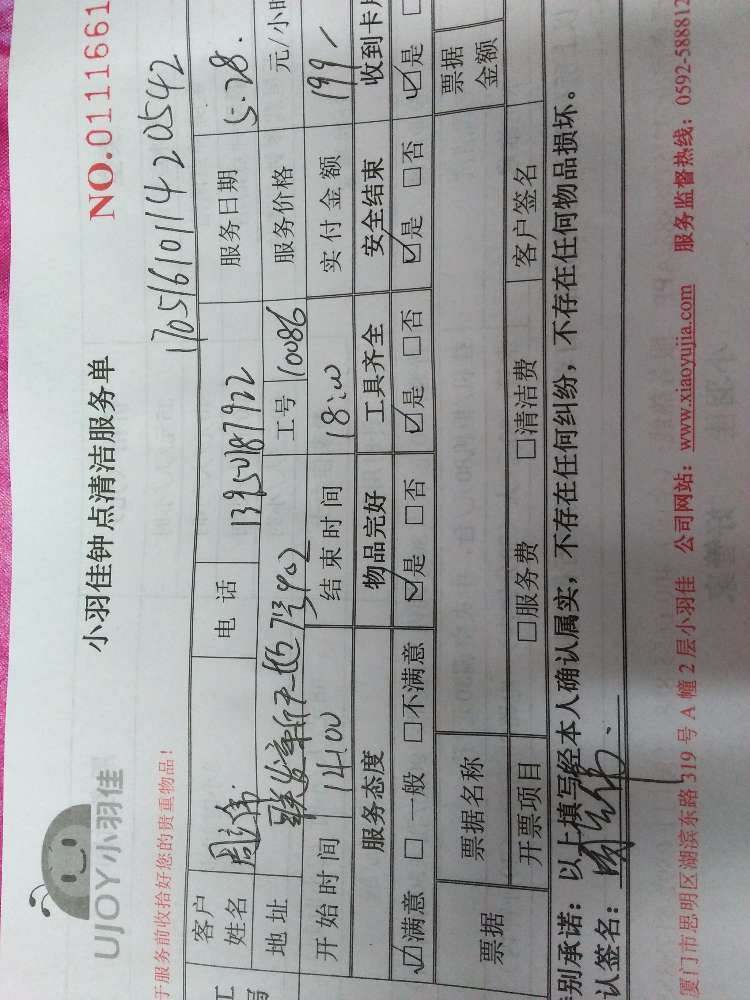 UJOY小羽佳
小羽佳钟点清洁服务单
NO.0111661
于服务前收拾好您的贵重物品!
17051610114420542
客户姓名 电话 13950187922 服务日期 5.28.
地址 工号 10086 服务价格 元/小时
开始时间 14:00 结束时间 18:00 实付金额 199
服务态度 物品完好 工具齐全 安全结束 收到卡片
☑满意 □一般 □不满意 ☑是 □否 ☑是 □否 ☑是 □否 ☑是 □
票据 票据名称 票据金额
开票项目 □服务费 □清洁费 客户签名
别承诺:以上填写经本人确认属实,不存在任何纠纷,不存在任何物品损坏。
认签名:
厦门市思明区湖滨东路319号A幢2层小羽佳 公司网站:www.xiaoyujia.com 服务监督热线:0592-588812